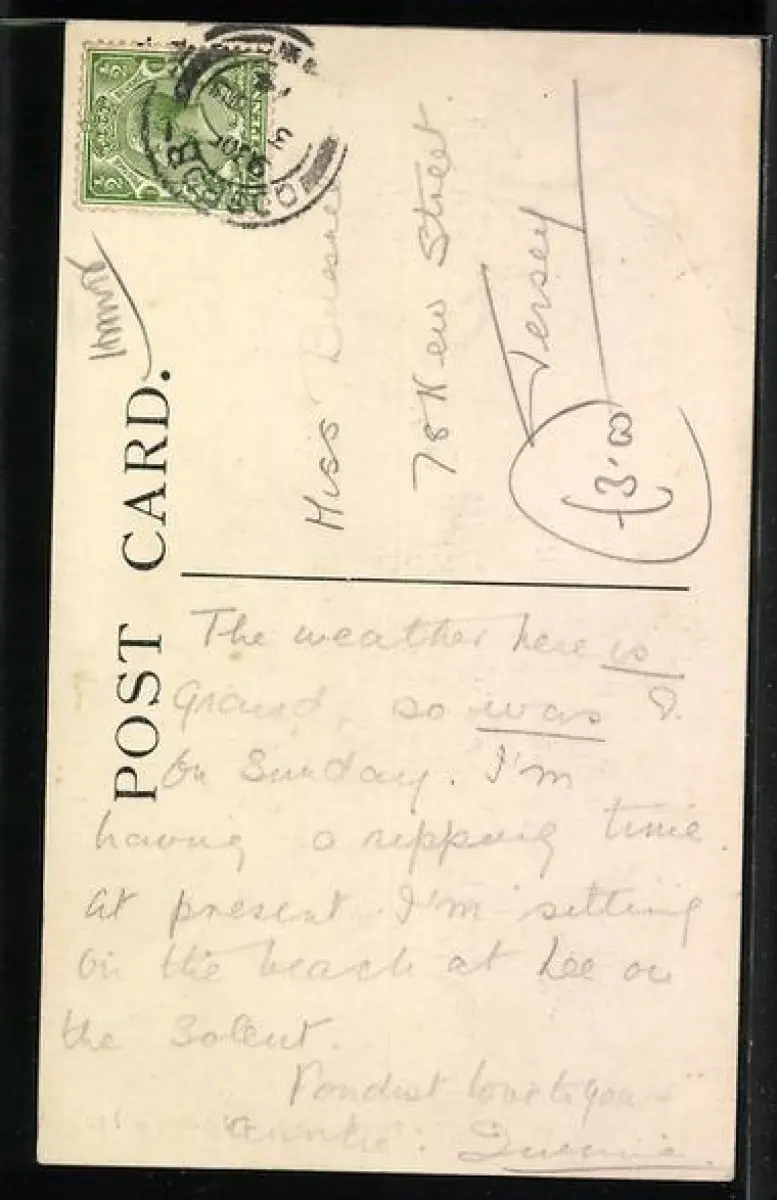 ½ PENNY ½
POST CARD.
Hants
Miss
78 New Street.
Jersey
£3.00
The weather here is
Grand, so was I.
On Sunday. I'm
having a ripping time
at present. I'm sitting
on the beach at Lee on
the Solent.
Fondest love to you
Auntie. Queenie.